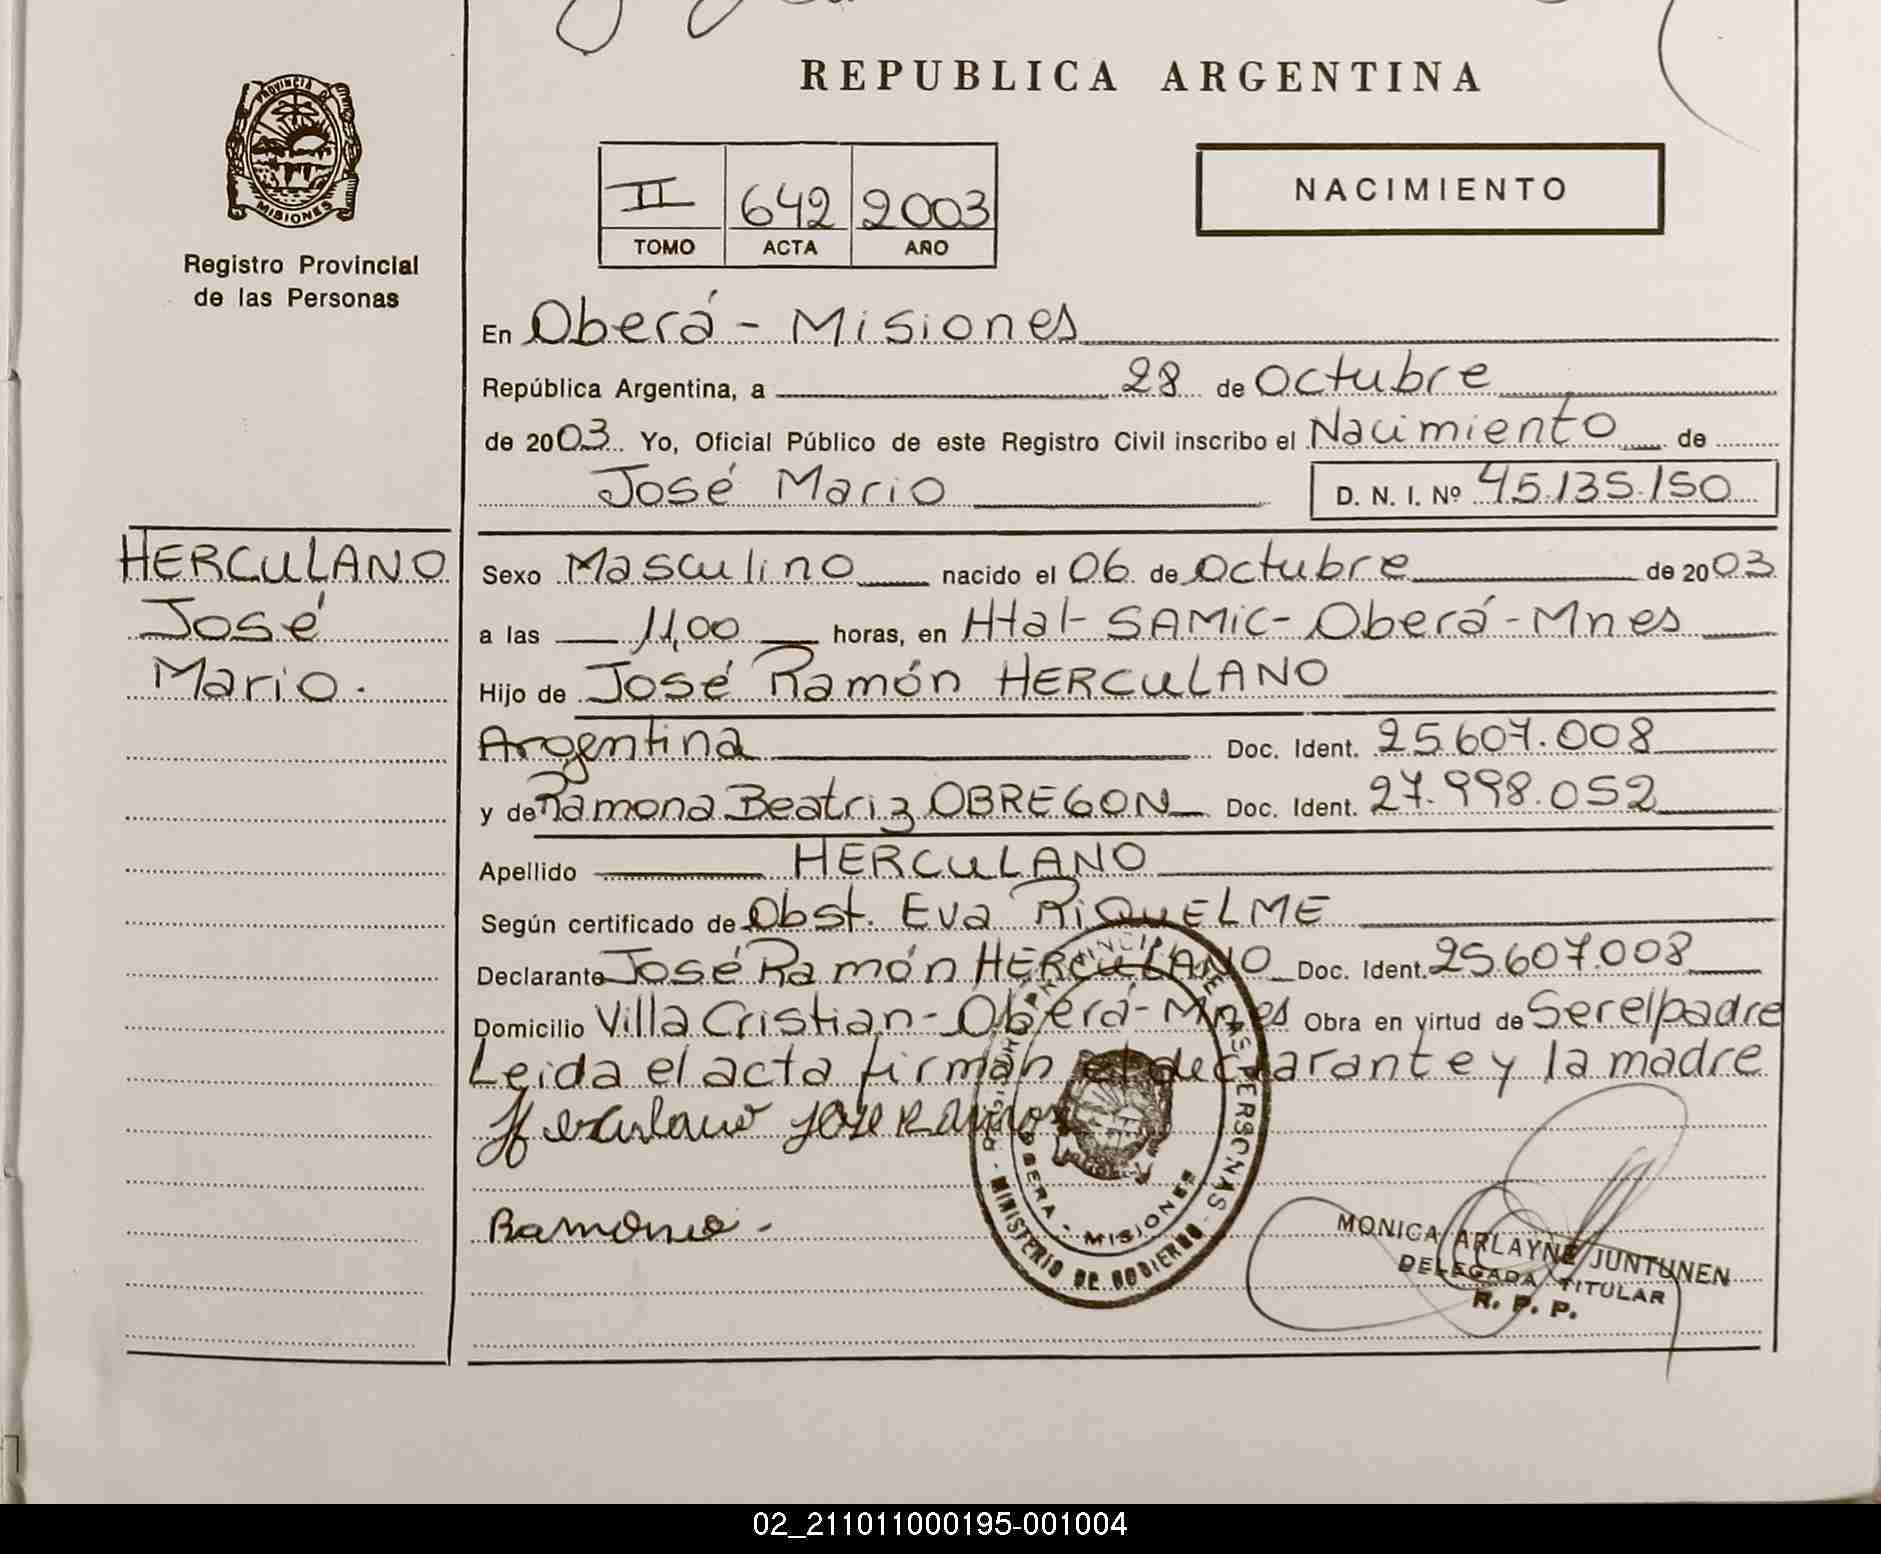 REPUBLICA ARGENTINA
PROVINCIA DE
MISIONES
Registro Provincial
de las Personas
II 642 2003
TOMO ACTA AÑO
NACIMIENTO
En Oberá - Misiones
República Argentina, a 28 de Octubre
de 2003 Yo, Oficial Público de este Registro Civil inscribo el Nacimiento de
José Mario D. N. I. Nº 45.135.150
HERCULANO
José
Mario.
Sexo Masculino nacido el 06 de Octubre de 2003
a las 11,00 horas, en Htal- SAMIC- Oberá - Mnes
Hijo de José Ramón HERCULANO
Argentina Doc. Ident. 25.607.008
y de Ramona Beatriz OBREGON Doc. Ident. 27.998.052
Apellido HERCULANO
Según certificado de Obst. Eva RIQUELME
Declarante José Ramón HERCULANO Doc. Ident. 25.607.008
Domicilio Villa Cristian - Oberá - Mnes Obra en virtud de Ser el padre
Leida el acta firman el declarante y la madre
Herculano Jose Ramon
Ramona -
OBERA - MISIONES
MINISTERIO DE GOBIERNO
MONICA ARLAYNE JUNTUNEN
DELEGADA TITULAR
R. P. P.
02_211011000195-001004